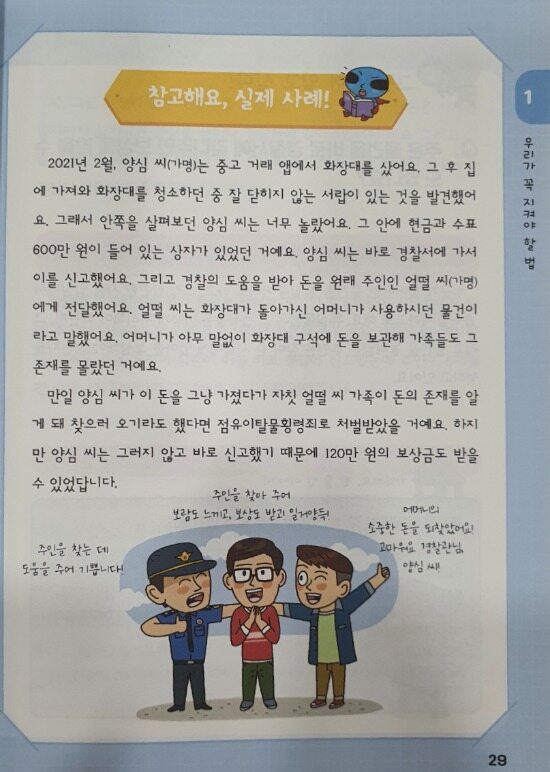 참고해요, 실제 사례!
1
우리가 꼭 지켜야 할 법
2021년 2월, 양심 씨(가명)는 중고 거래 앱에서 화장대를 샀어요. 그 후 집
에 가져와 화장대를 청소하던 중 잘 닫히지 않는 서랍이 있는 것을 발견했어
요. 그래서 안쪽을 살펴보던 양심 씨는 너무 놀랐어요. 그 안에 현금과 수표
600만 원이 들어 있는 상자가 있었던 거예요. 양심 씨는 바로 경찰서에 가서
이를 신고했어요. 그리고 경찰의 도움을 받아 돈을 원래 주인인 얼떨 씨(가명)
에게 전달했어요. 얼떨 씨는 화장대가 돌아가신 어머니가 사용하시던 물건이
라고 말했어요. 어머니가 아무 말없이 화장대 구석에 돈을 보관해 가족들도 그
존재를 몰랐던 거예요.
만일 양심 씨가 이 돈을 그냥 가졌다가 자칫 얼떨 씨 가족이 돈의 존재를 알
게 돼 찾으러 오기라도 했다면 점유이탈물횡령죄로 처벌받았을 거예요. 하지
만 양심 씨는 그러지 않고 바로 신고했기 때문에 120만 원의 보상금도 받을
수 있었답니다.
주인을 찾는 데
도움을 주어 기쁩니다!
주인을 찾아 주어
보람도 느끼고, 보상도 받고! 일거양득!
어머니의
소중한 돈을 되찾았어요!
고마워요 경찰관님,
양심 씨!
29